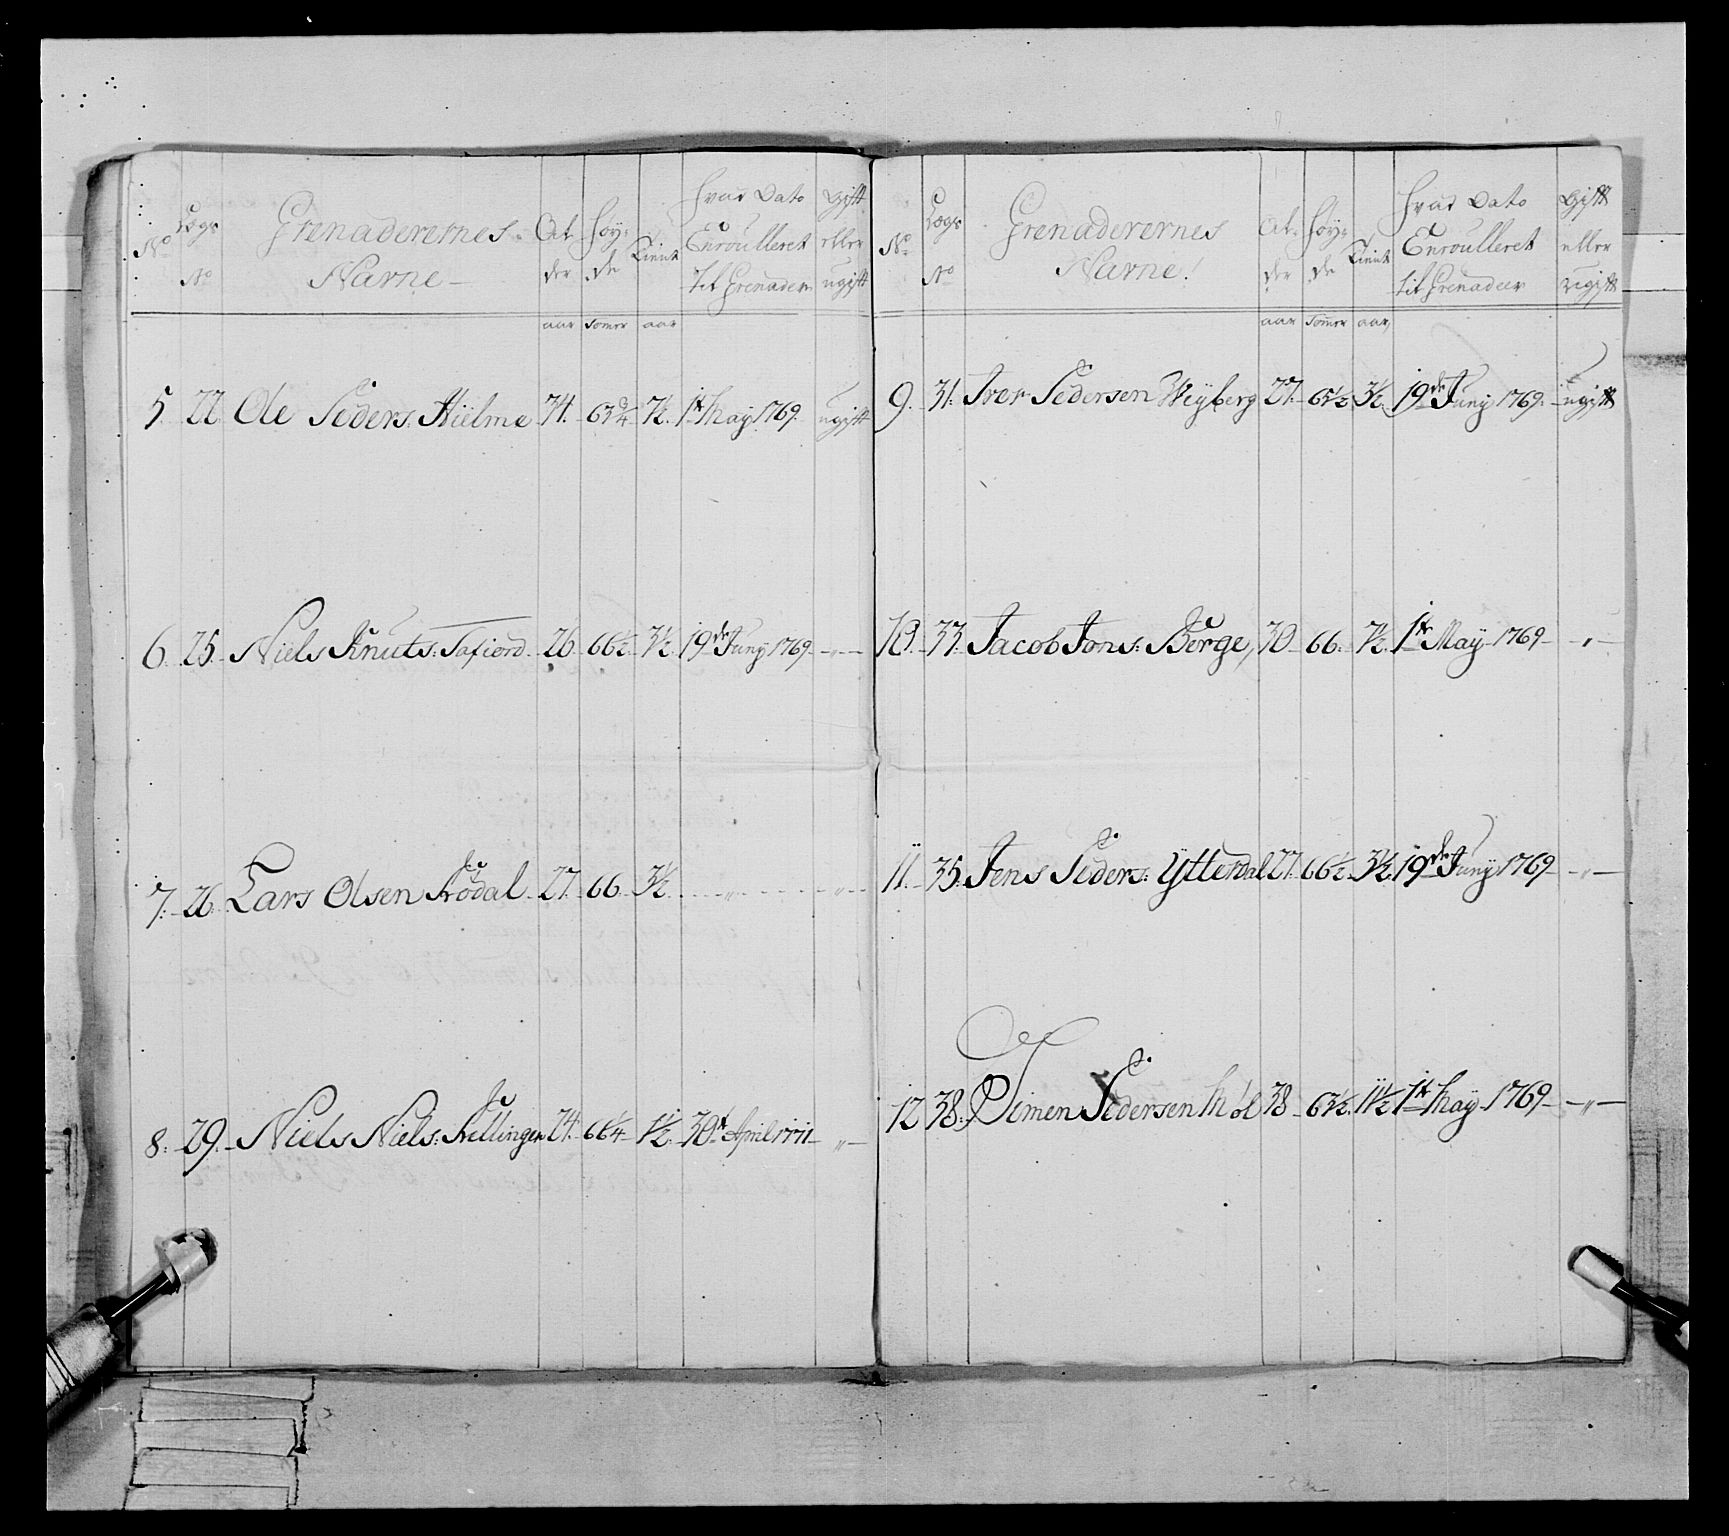 No Lægs No Grenaderernes Navne Alder Høyde Tient Hvad Dato Enroulleret til Grenadeer Gift eller ugift
aar Tomer aar
5. 22. Ole Peders: Hiilme 34. 63 3/4 7½. 1st May 1769. ugift
6. 25. Niels Knuts: Tafiord 26. 66½ 3½ 19de Juny 1769 — „ —
7. 26. Lars Olsen Frödal 27. 66. 3½ — „ — „ —
8. 29. Niels Niels: 24. 66¼ 1½ 30t April 1771 — „ —
No Lægs No Grenaderernes Navne! Alder Høyde Tient Hvad Dato Enroulleret til Grenadeer Gift eller ugift
aar Tomer aar
9. 31. Iver Pedersen Weyberg 27. 65½ 3½ 19de Juny 1769. ugift
10. 33. Jacob Jons: Berge, 30 66. 7½. 1te May 1769 — „ —
11. 35. Jens Peders: Ytterdal 27. 66½. 3½ 19de Juny 1769 — „ —
12 38. Simen Pedersen 38 63½. 11½ 1te May 1769 — „ —